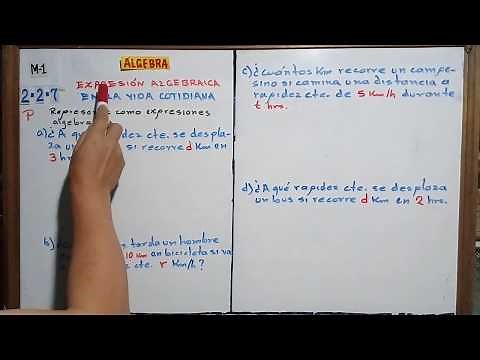 M-1
ALGEBRA
2.2.7
EXPRESIÓN ALGEBRAICA
EN LA VIDA COTIDIANA
P
como expresiones
a) ¿A rapidez cte. se despla-
za un si recorre d Km en
3 hrs
b) tarda un hombre
10 Km en bicicleta si va
cte. r Km/h?
c) ¿cuántos Km recorre un campe-
sino si camina una distancia a
rapidez cte. de 5 Km/h durante
t hrs.
d) ¿A qué rapidez cte. se desplaza
un bus si recorre d Km en 2 hrs.